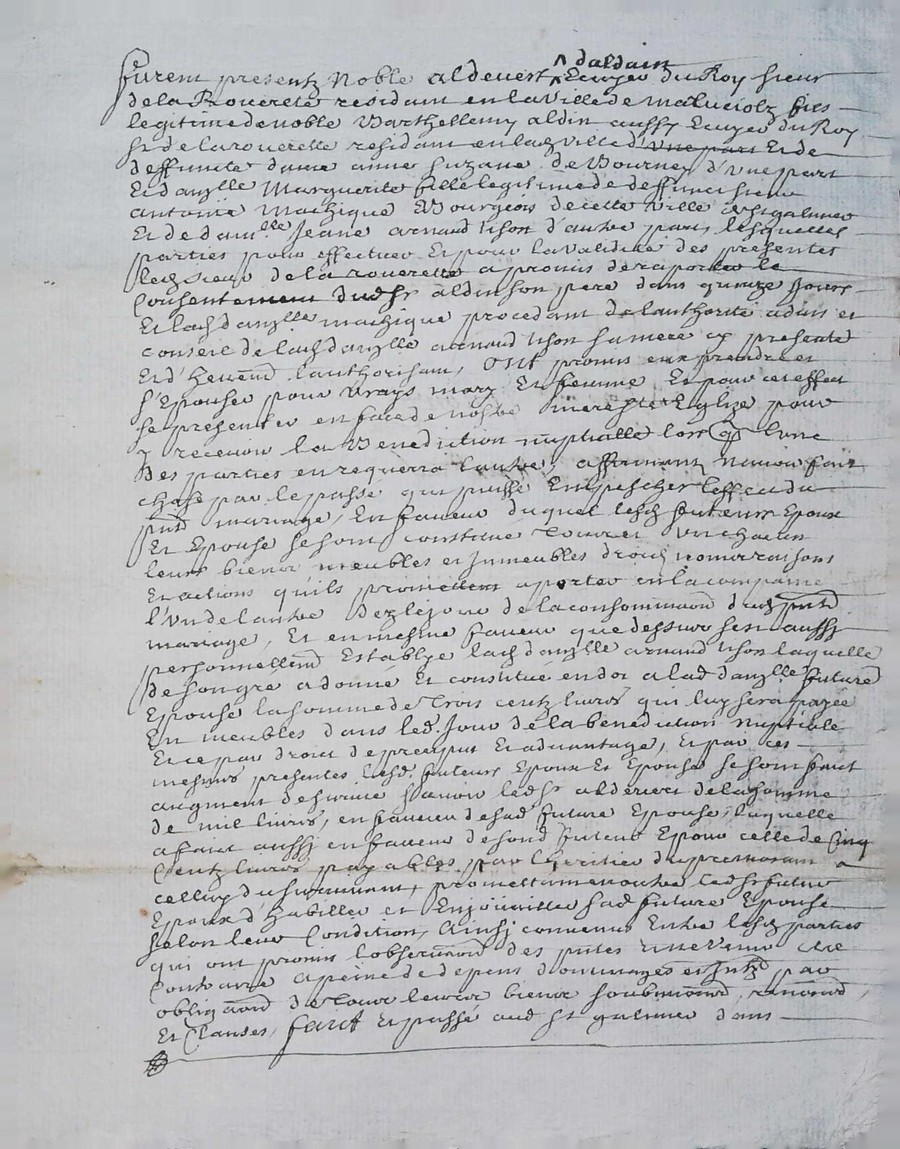 daldain
furent presentz Noble aldevert ^ Ecuyer du Roy sieur
de la Rouerete residant en la Ville de maluciolz fils
legitime de noble Barthellemy aldin aussy Ecuyer du Roy
Sr de la rouerette residant en lad ville d'une part Et de
deffuncte dame anne suzane de Bourney d'Une part
Et dauzlle Marguerite fille legitime de deffunct sieur
antoine Mathique Bourgeois de cette Ville de St galmier
Et de damlle Jeane arnaud d'autre part, lesquelles
parties pour effectuer Et pour la validite des presentes
led sieur de la rouerette a promis de raporter le
Consentement dud Sr aldin son pere dans quinze Jours
Et lad dauzlle mathique procedant de lauthorite aduis et
conseil de lad dauzlle arnaud sa mere cy presente
Et d'heuemt lauthorisant, Ont promis eux prendre et
s'Epouser pour Vrays mary Et femme Et pour cet effect
se presenter en face de nostre mere ste Eglize pour
y recevoir la Benediction nuptialle lors q l'une
des parties en requerra l'autre, affirmant n'auoir fait
chose par le passe qui puisse Empescher l'effect du
pnt mariage, En faveur duquel lesd futeurs Epoux
Et Epouse se sont constitue Toutz Un chacun
leurs biens meubles et Immeubles droitz noms raisons
Et actions qu'ils promettent aporter en la compaine
l'Un de l'autre Dez le jour de la consommaon dud pnt
mariage, Et en mesme faveur que dessus s'est aussy
personnellemt Establye lad dauzlle arnaud laquelle
de son gre a donne Et constitue en dot a lad dauzlle future
Epouse la somme de Trois centz livres qui luy sera payee
En meubles dans led. Jour de la benediction nuptiale
Et ce par droit de preciput Et aduantage, Et par ces
mesmes presentes lesd. futeurs Epoux Et Epouse se sont faict
augment de survie sçavoir led Sr aldevert de la somme
de mil livres, en faveur de sad future Epouse, laquelle
a faict aussi en faveur de sond futeur Epoux celle de Cinq
Centz livres payables par l'heritier du premourant a
celluy du survivant, promettant en outre led Sr futur
Epoux d'habiller et Enjoüailler sad future Epouse
selon leur Condition, Ainsi convenu Entre lesd parties
qui ont promis l'observaon des pntes
Contraire a peine de depens dommages et Intz par
obligaon de Tous leurs biens soubmissions, renonons,
Et Clauses, faict Et passé aud St galmier dans